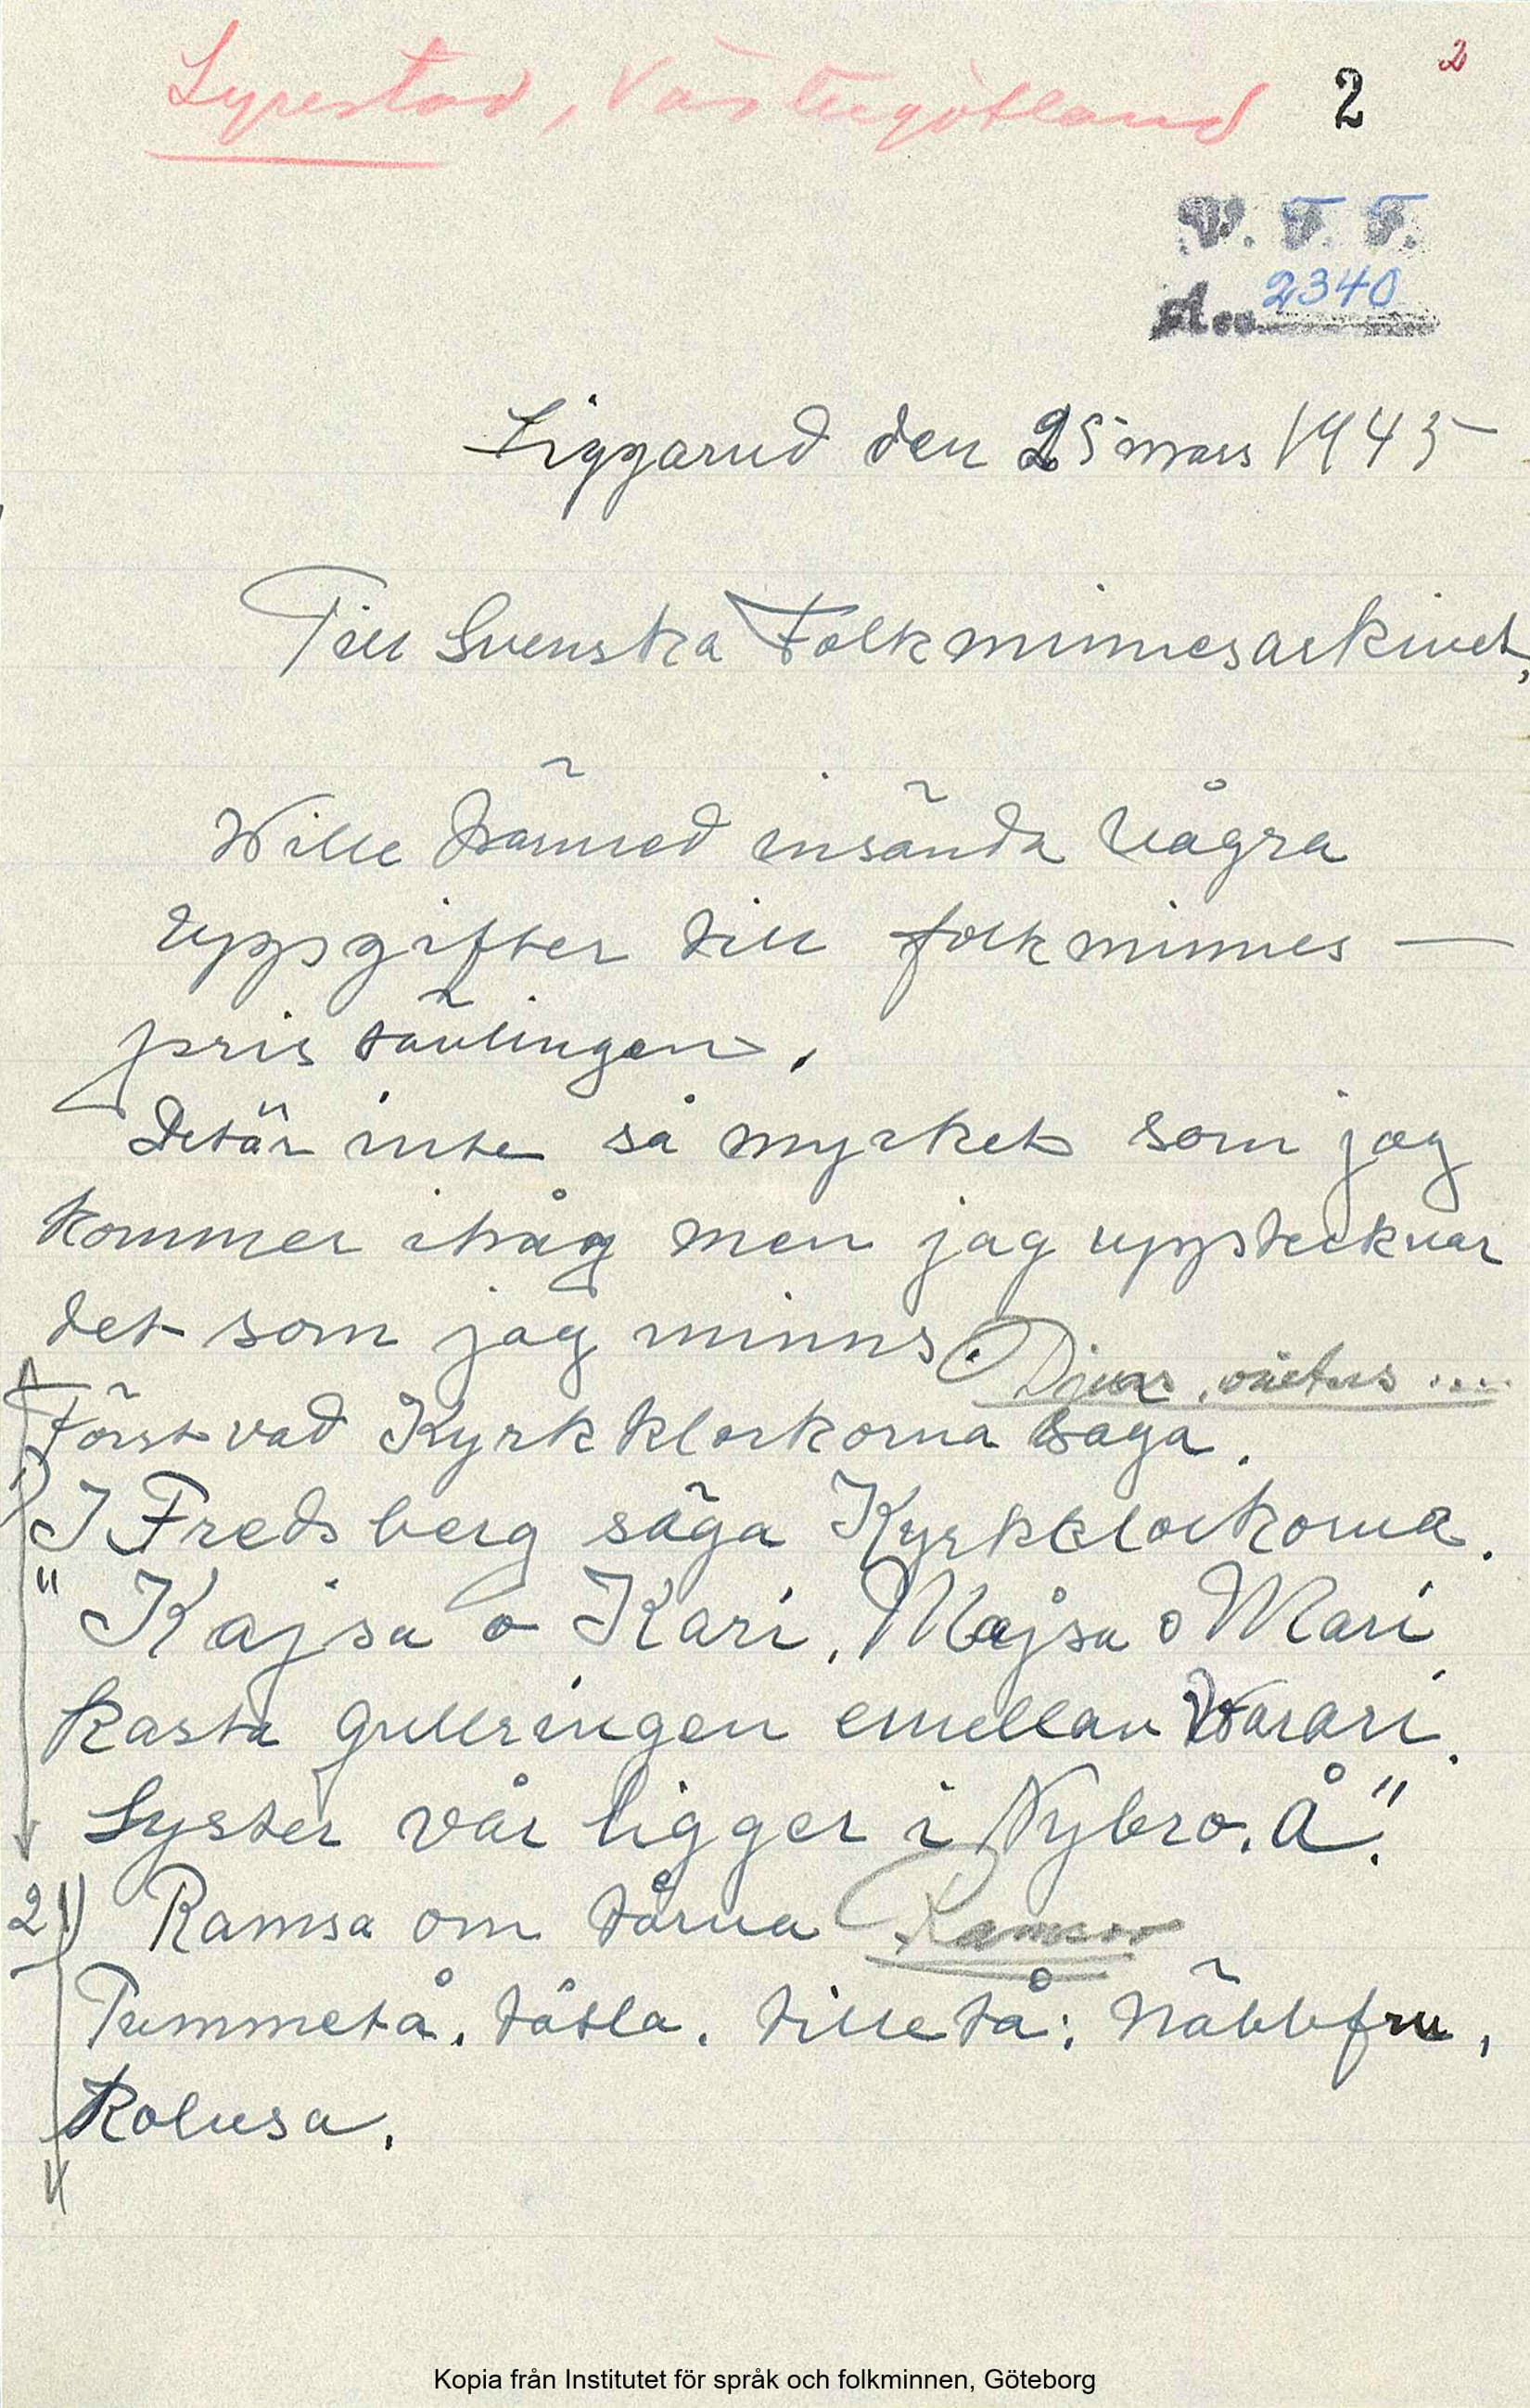 Lyrestad, Västergötland 2 2
V. F. F.
Acc. 2340
Liggarud den 25 mars 1945
Till Svenska Folkminnesarkivet,
Wille härmed insända några
uppgifter till folkminnes-
pris tävlingen.
Det är inte så mycket som jag
kommer ihåg men jag upptecknar
det som jag minns.
Djurs, 
Först vad Kyrkklockorna säga.
I Fredsberg säga Kyrkklockorna.
"Kajsa o Kari, Majsa o Mari
kasta gullringen emellan Warari.
Syster vår ligger i Nybro. Å".
2) Ramsa om tårna Ramsor
Tummetå. tåtla. tilletå: Näbbfru,
Rolusa.
Kopia från Institutet för språk och folkminnen, Göteborg